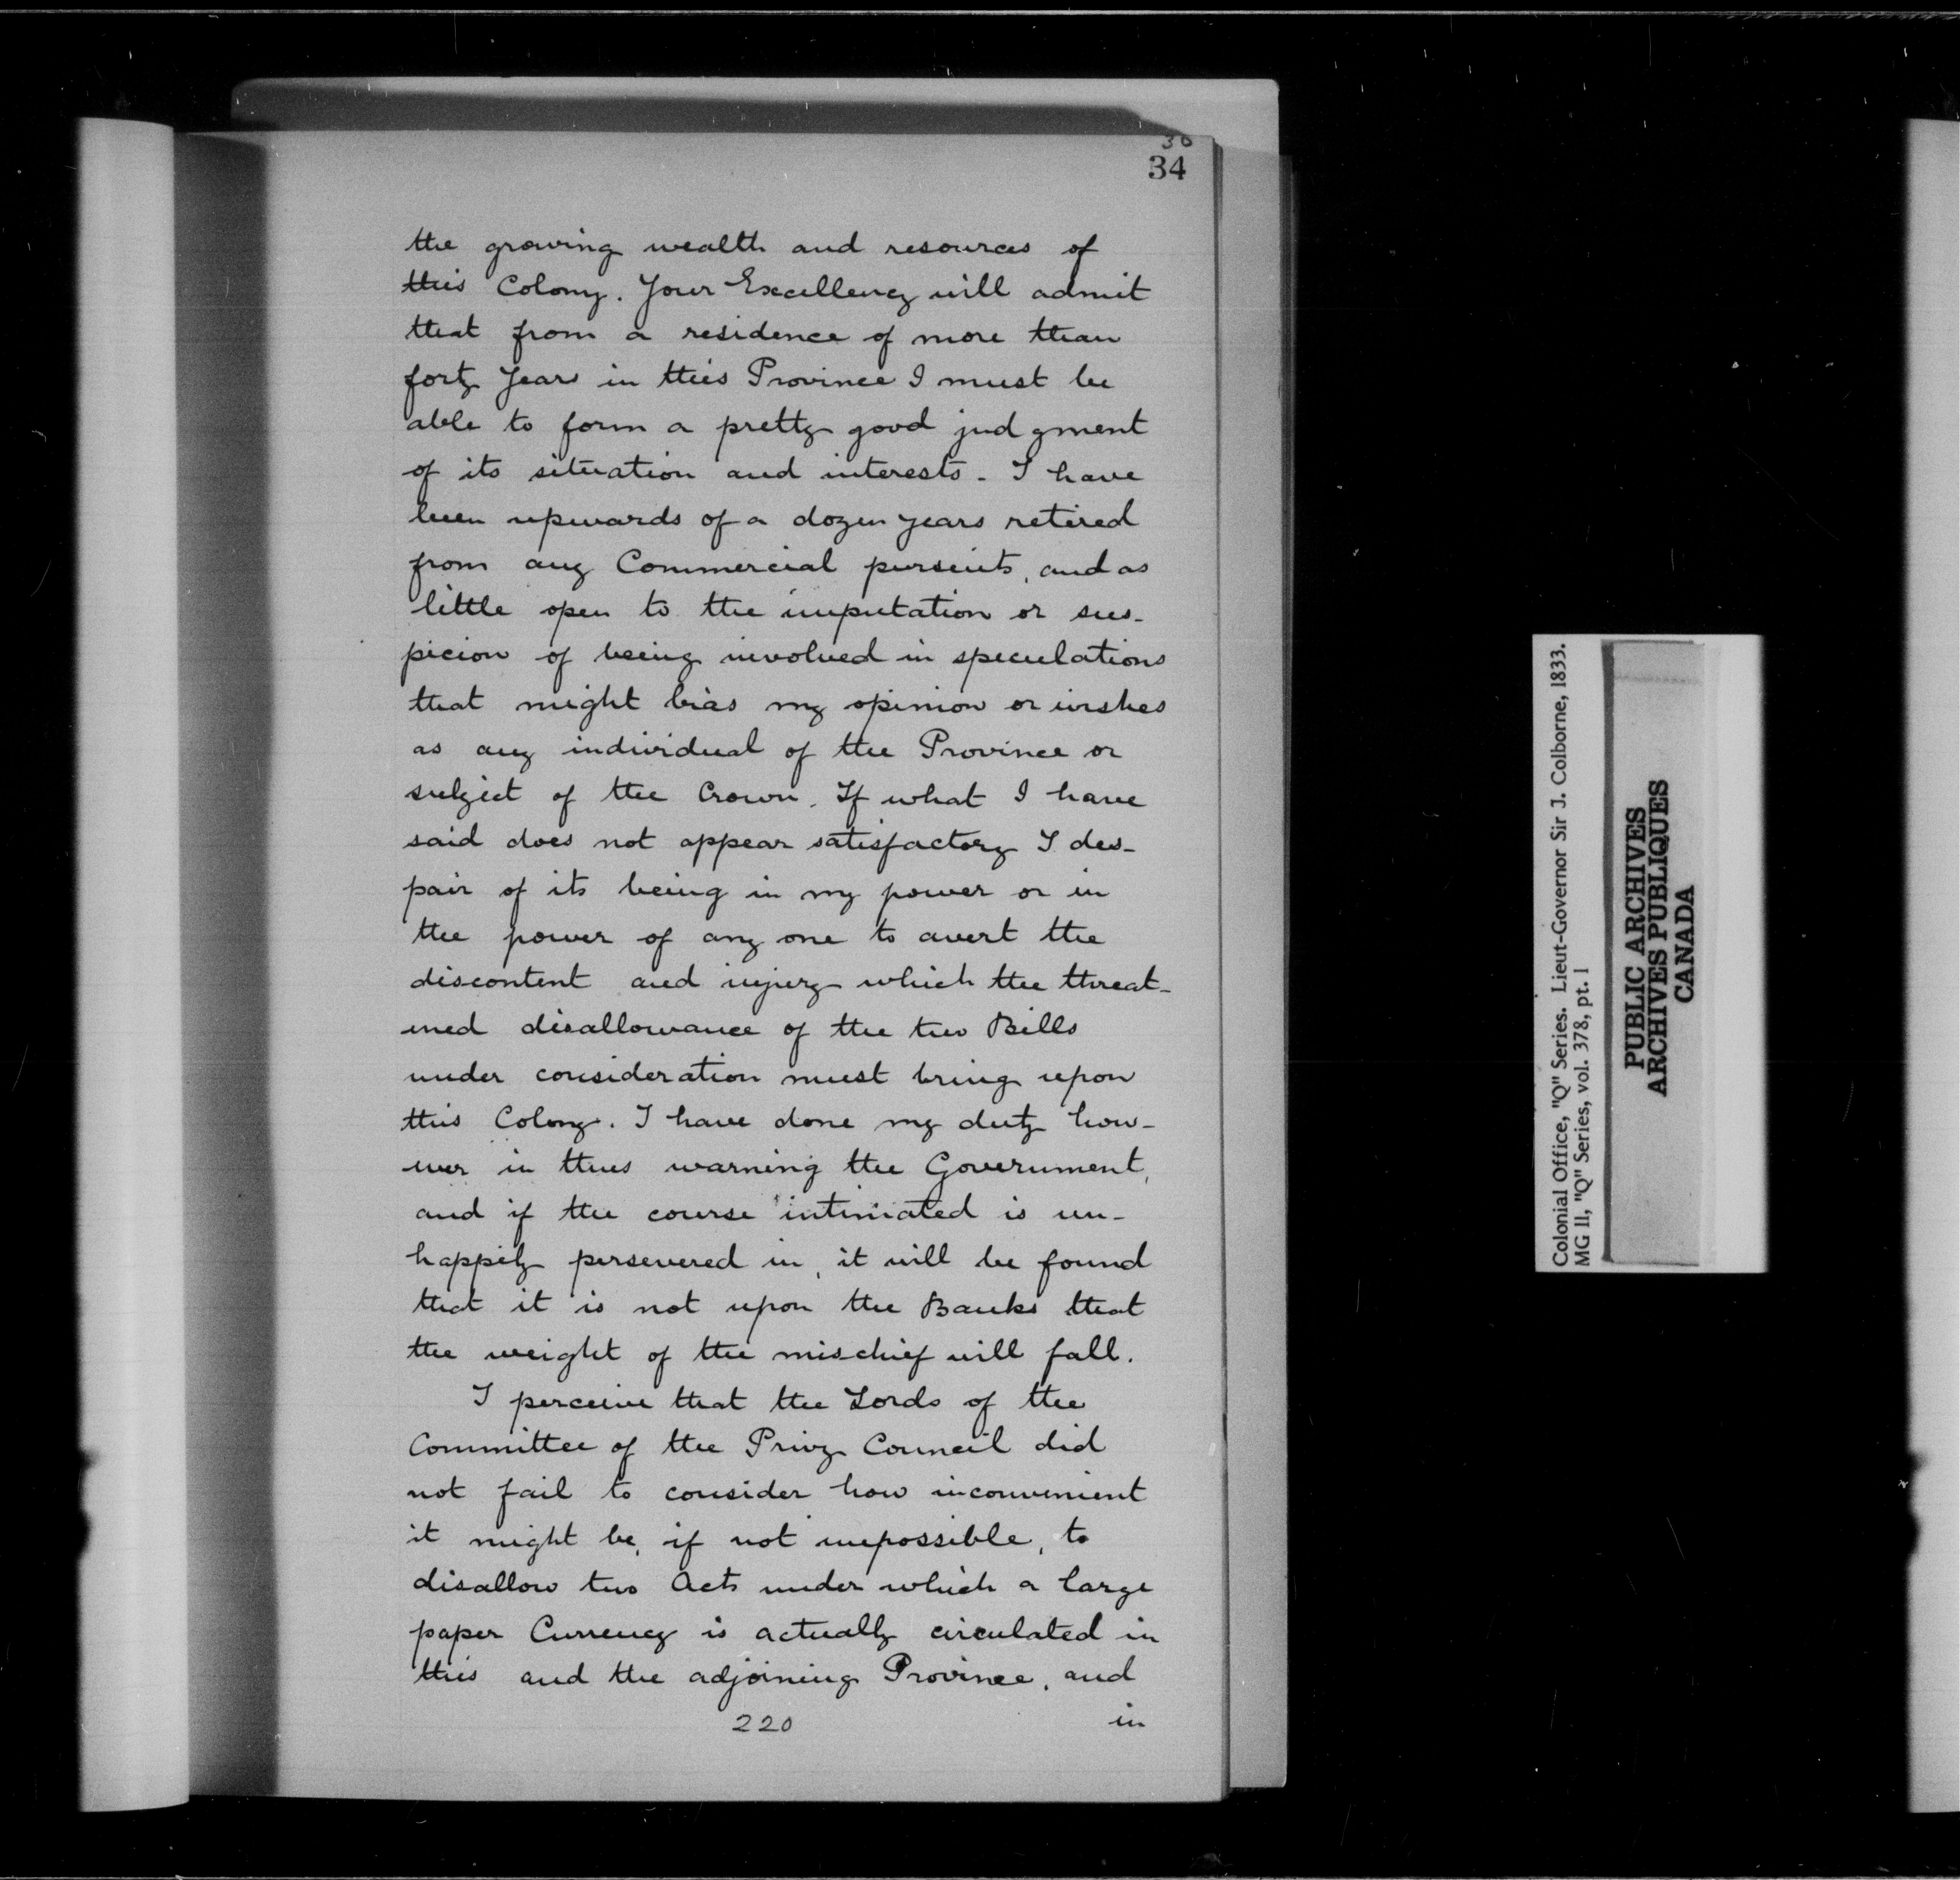 36
34
the growing wealth and resources of
this Colony. Your Excellency will admit
that from a residence of more than
forty years in this Province I must be
able to form a pretty good judgment
of its situation and interests. I have
been upwards of a dozen years retired
from any Commercial pursuits, and as
little open to the imputation or sus-
picion of being involved in speculations
that might bias my opinion or wishes
as any individual of the Province or
subject of the Crown. If what I have
said does not appear satisfactory I des-
pair of its being in my power or in
the power of any one to avert the
discontent and injury which the threat-
ened disallowance of the two Bills
under consideration must bring upon
this Colony. I have done my duty how-
ever in thus warning the Government,
and if the course intimated is un-
happily persevered in, it will be found
that it is not upon the Banks that
the weight of the mischief will fall.
I perceive that the Lords of the
Committee of the Privy Council did
not fail to consider how inconvenient
it might be, if not impossible, to
disallow two Acts under which a large
paper Currency is actually circulated in
this and the adjoining Province, and
220 in
Colonial Office, "Q" Series. Lieut-Governor Sir J. Colborne, 1833.
MG 11, "Q" Series, vol. 378, pt. 1
PUBLIC ARCHIVES
ARCHIVES PUBLIQUES
CANADA